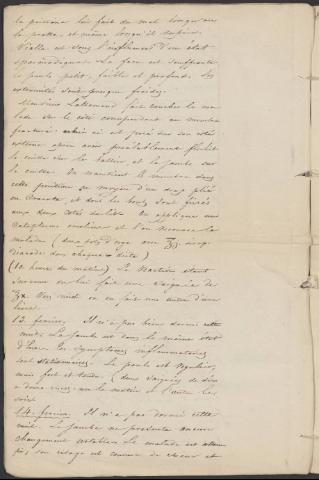 la poitrine lui fait du mal lorsqu'on
la presse, et même lorsqu'il respire.
Vialla est sous l'influence d'un état
spasmodique. La face est souffrante
le pouls petit, faible et profond. Les
extremités sont presque froides.
Monsieur Lallemand fait coucher le ma-
lade sur le côté correspondant au membre
fracturé: celui ci est posé sur son côté
externe après avoir préalablement fléchi
la cuisse sur le bassin, et la jambe sur
la cuisse. On maintient le membre dans
cette position au moyen d'un drap plié
en cravate, et dont les bouts sont fixés
aux deux côtés du lit. On applique un
cataplasme emollient et l'on
malade (deux pots d'orge avec ʒj sirop
diacode dans chaque - diète)
(10 heures du matin) La réaction étant
survenue on lui fait une saignée de
ʒx. Vers midi on en fait une autre d'une
livre.
13. fevrier. Il n'a pas bien dormi cette
nuit. La jambe est dans le même état
d'hier. Les symptomes inflammatoires
sont stationnaires. Le pouls est régulier,
mais fort et tendu. (deux saignées de dix
à douze onces: une le matin et l'autre le
soir)
14. fevrier. Il n'a pas dormi cette
nuit. La jambe ne présente aucun
changement notable. Le malade est
son visage est couvert de sueur et